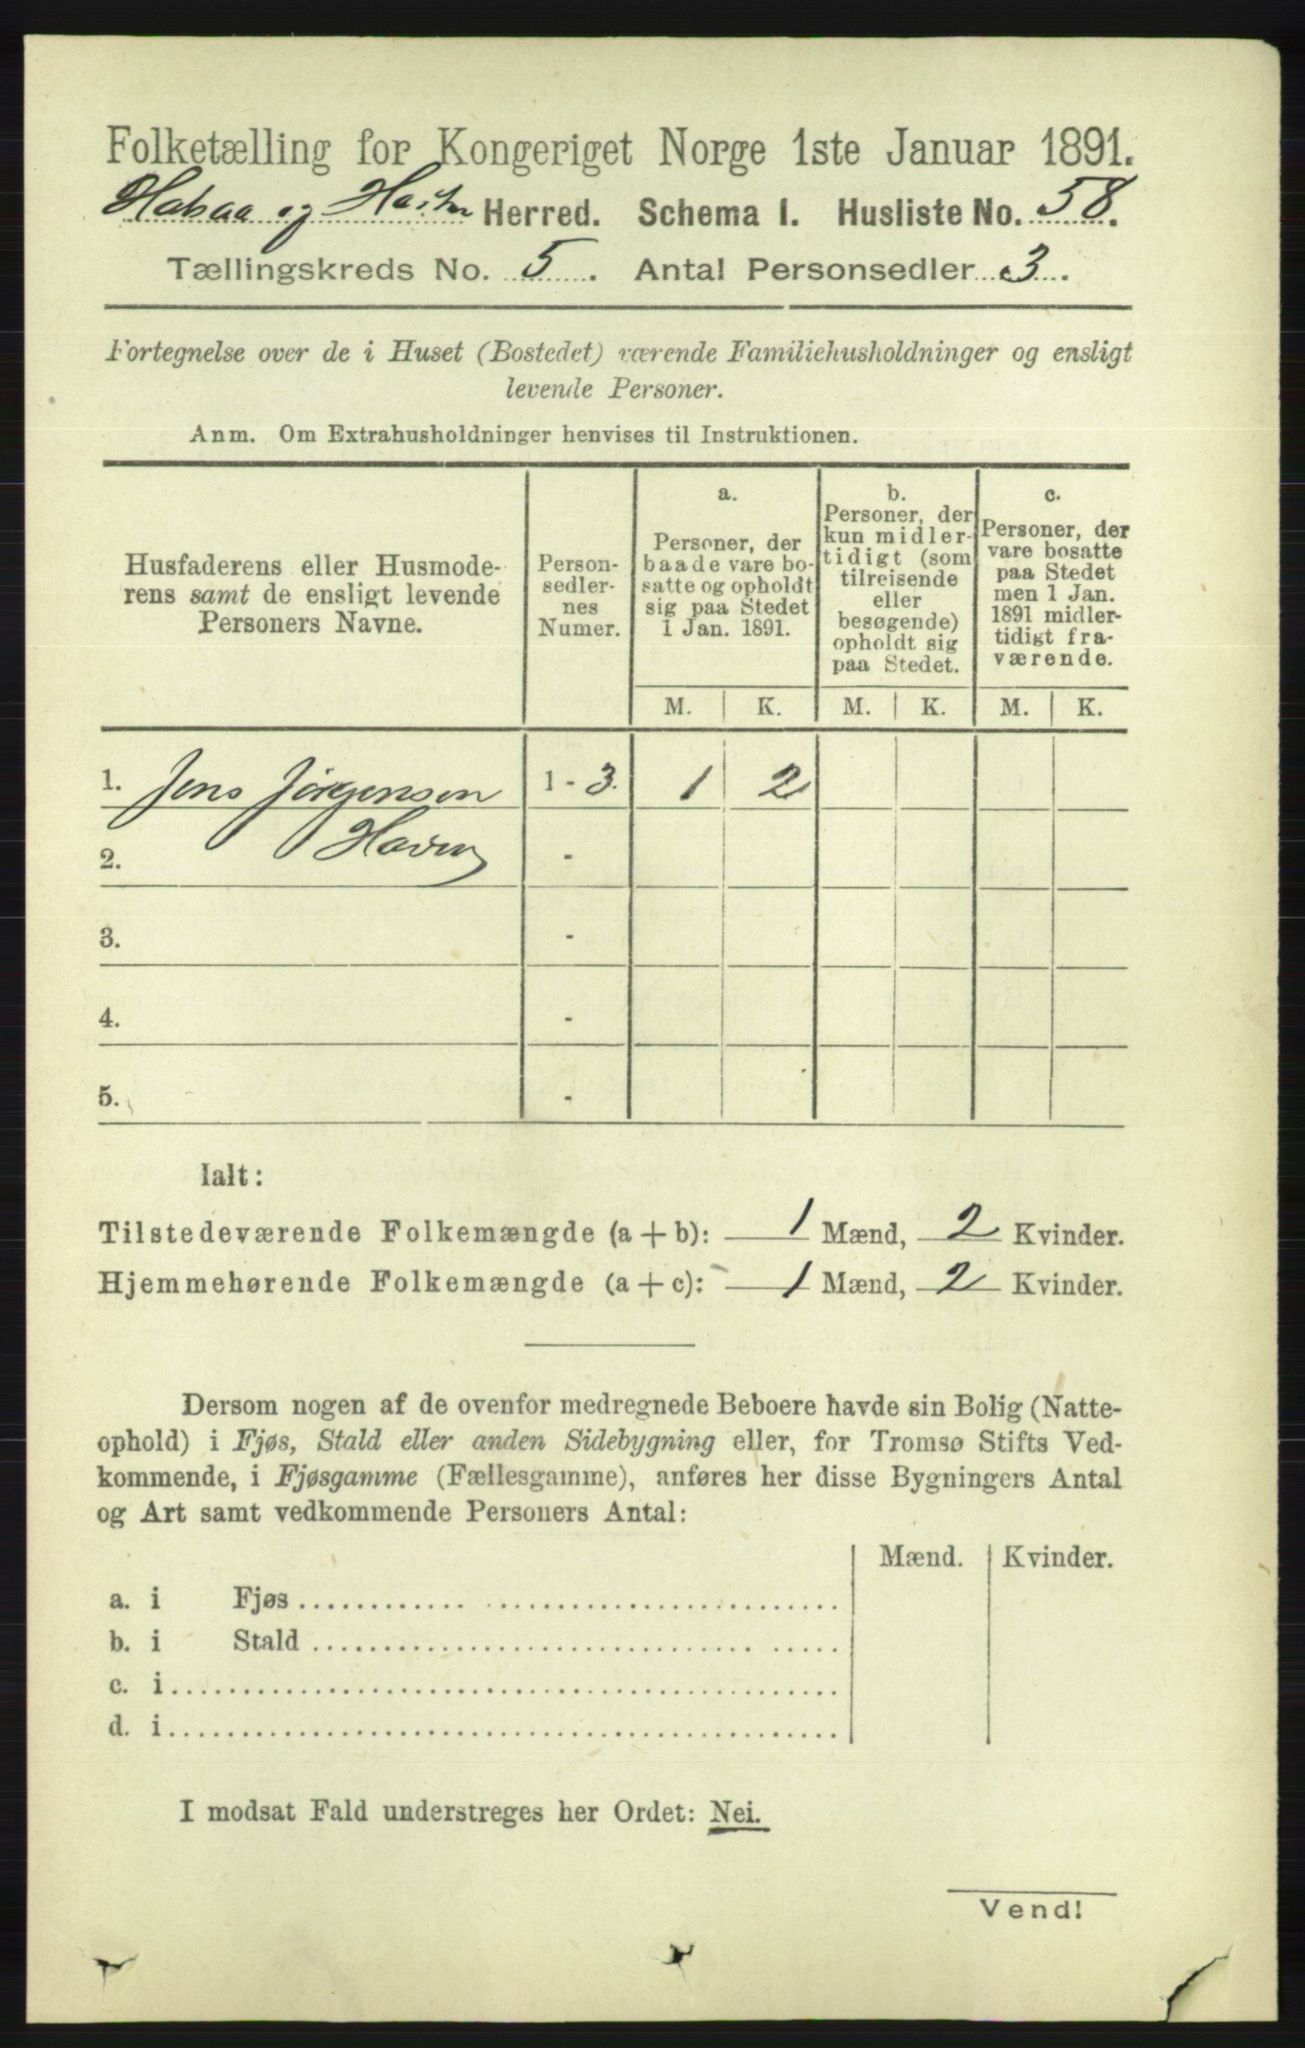 Folketælling for Kongeriget Norge 1ste Januar 1891.
og Herred. Schema I. Husliste No. 58.
Tællingskreds No. 5. Antal Personsedler 3.
Fortegnelse over de i Huset (Bostedet) værende Familiehusholdninger og ensligt
levende Personer.
Anm. Om Extrahusholdninger henvises til Instruktionen.
Husfaderens eller Husmode-
rens samt de ensligt levende
Personers Navne.
Person-
sedler-
nes
Numer.
a.
Personer, der
baade vare bo-
satte og opholdt
sig paa Stedet
1 Jan. 1891.
b.
Personer, der
kun midler-
tidigt (som
tilreisende
eller
besøgende)
opholdt sig
paa Stedet.
c.
Personer, der
vare bosatte
paa Stedet
men 1 Jan.
1891 midler-
tidigt fra-
værende.
M. K. M. K. M. K.
1. Jens Jörgensen 1 - 3. 1 2
2. -
3. -
4. -
5. -
Ialt:
Tilstedeværende Folkemængde (a + b): 1 Mænd, 2 Kvinder.
Hjemmehørende Folkemængde (a + c): 1 Mænd, 2 Kvinder.
Dersom nogen af de ovenfor medregnede Beboere havde sin Bolig (Natte-
ophold) i Fjøs, Stald eller anden Sidebygning eller, for Tromsø Stifts Ved-
kommende, i Fjøsgamme (Fællesgamme), anføres her disse Bygningers Antal
og Art samt vedkommende Personers Antal:
Mænd. Kvinder.
a. i Fjøs
b. i Stald
c. i
d. i
I modsat Fald understreges her Ordet: Nei.
Vend!